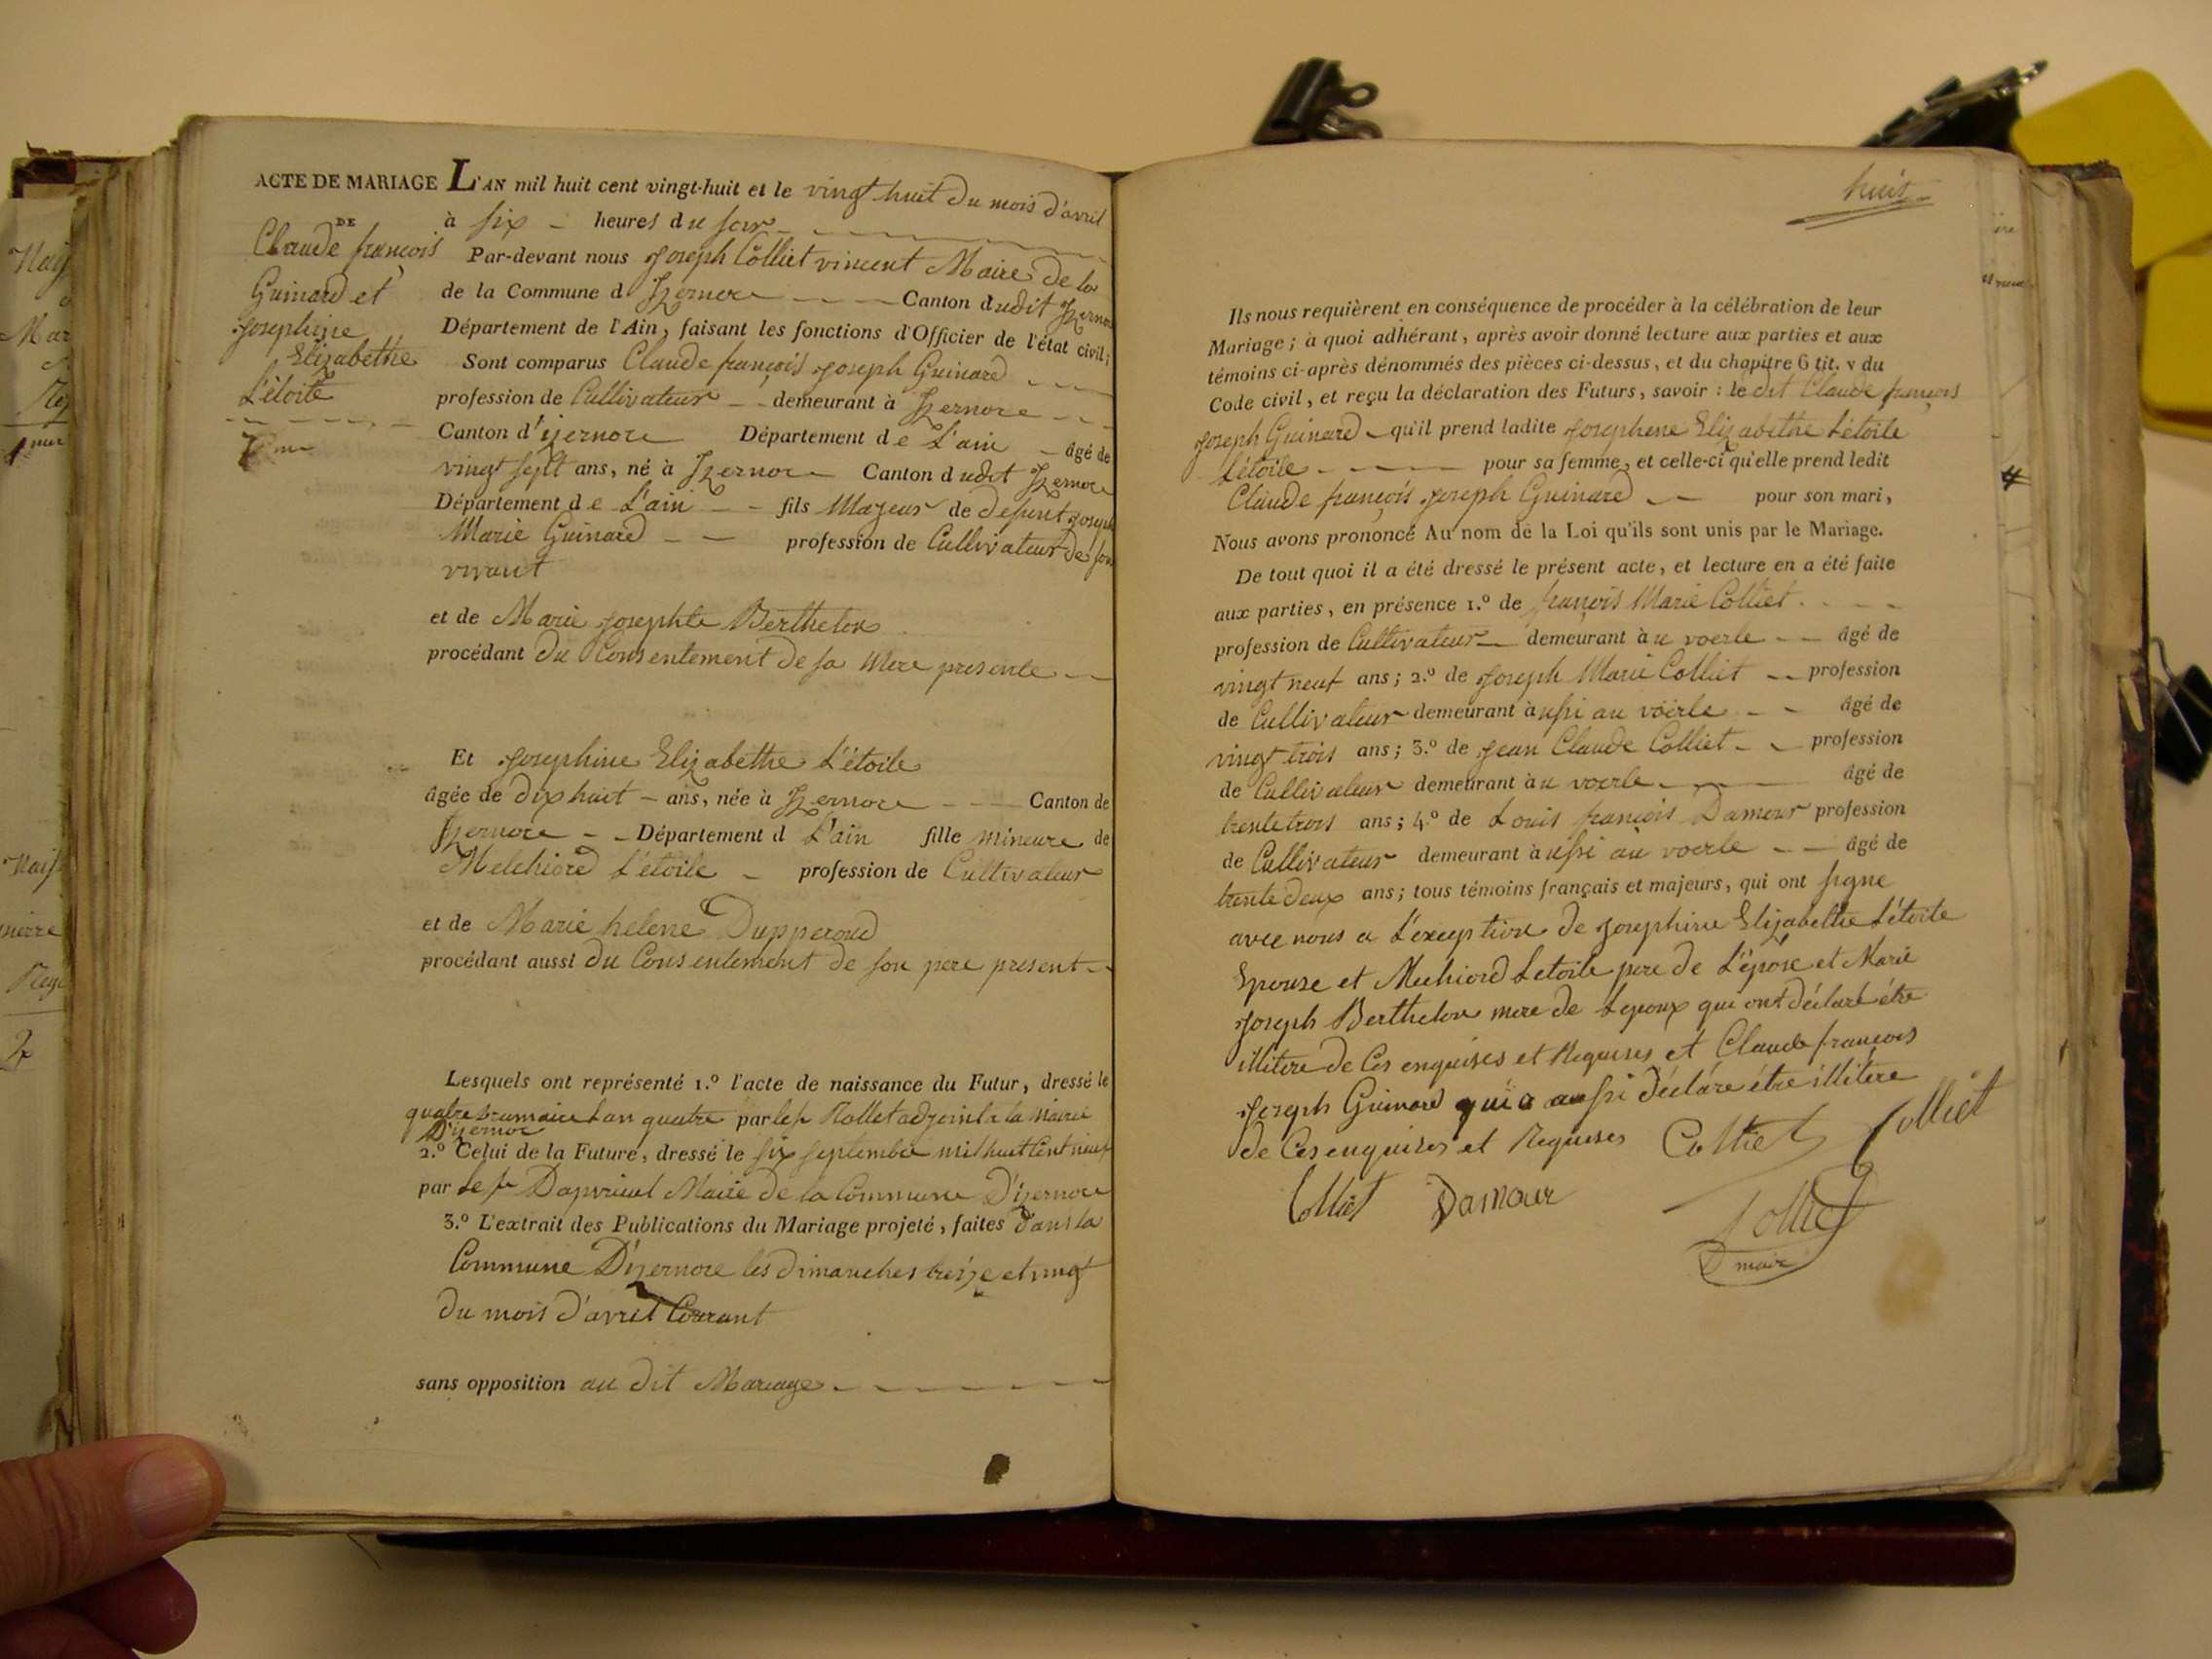 ACTE DE MARIAGE
DE
Claude françois
Guinard et
Josephine
Elizabethe
L'étoile
7me
L'AN mil huit cent vingt-huit et le vingt huit du mois d'avril
à six heures du soir
Par-devant nous Joseph Colliet vincent Maire de la
de la Commune d Izernore Canton dudit Izernore
Département de l'Ain, faisant les fonctions d'Officier de l'état civil;
Sont comparus Claude françois joseph Guinard
profession de Cultivateur demeurant à Izernore
Canton d'izernore Département de L'ain âgé de
vingt sept ans, né à Izernore Canton dudit Izernore
Département de L'ain fils Majeur de defunt joseph
Marie Guinard profession de Cultivateur de son
vivant
et de Marie josephte Berthelon
procédant du Consentement de sa Mere presente
Et Josephine Elizabethe L'étoile
âgée de dix huit ans, née à Izernore Canton de
Izernore Département d L'ain fille mineure de
Melchiord L'étoile profession de Cultivateur
et de Marie helene Dupperoud
procédant aussi du Consentement de son pere present
Lesquels ont représenté 1.º l'acte de naissance du Futur, dressé le
quatre brumaire L'an quatre par le sr Rollet adjoint a la Mairie
D'izernore
2.º Celui de la Future, dressé le six septembre mil huit Cent neuf
par Le sr Maire de la Commune D'izernore
3.º L'extrait des Publications du Mariage projeté, faites dans la
Commune D'izernore les dimanches treize et vingt
du mois d'avril Courant
sans opposition au dit Mariage
huit
Ils nous requièrent en conséquence de procéder à la célébration de leur
Mariage; à quoi adhérant, après avoir donné lecture aux parties et aux
témoins ci-après dénommés des pièces ci-dessus, et du chapitre 6 tit. v du
Code civil, et reçu la déclaration des Futurs, savoir: le dit Claude françois
joseph Guinard qu'il prend ladite Josephene Elizabethe L'étoile
L'étoile pour sa femme, et celle-ci qu'elle prend ledit
Claude françois joseph Guinard pour son mari,
Nous avons prononcé Au nom de la Loi qu'ils sont unis par le Mariage.
De tout quoi il a été dressé le présent acte, et lecture en a été faite
aux parties, en présence 1.º de françois Marie Colliet
profession de Cultivateur demeurant àu voerle âgé de
vingt neuf ans; 2.º de Joseph Marie Colliet profession
de Cultivateur demeurant àussi au voerle âgé de
vingt trois ans; 3.º de Jean Claude Colliet profession
de Cultivateur demeurant àu voerle âgé de
trente trois ans; 4.º de Louis françois Damour profession
de Cultivateur demeurant àussi au voerle âgé de
trente deux ans; tous témoins français et majeurs, qui ont signe
avec nous a L'exception de Josephine Elizabethe L'étoile
Epouse et Melchiord Letoile pere de L'épose et Marie
Joseph Berthelon mere de Lepoux qui ont déclaré étre
illitere de Ces enquises et Requises et Claude françois
Joseph Guinard qui a aussi déclare étre illitere
de Ces enquises et Requises Colliet Colliet
Colliet Damour
Colliet
maire